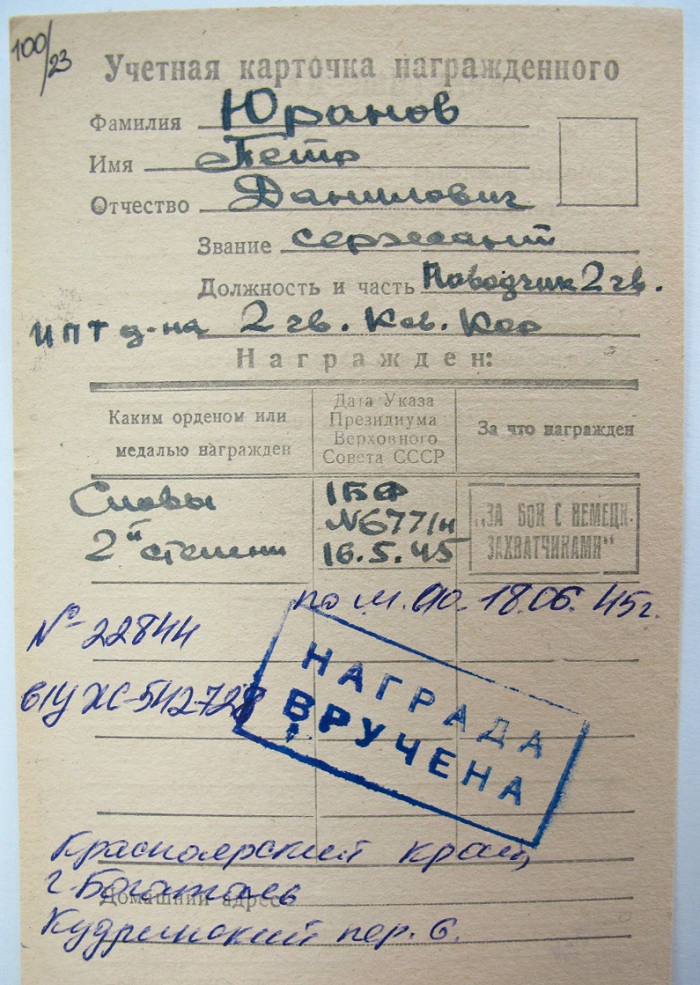 100/23
Учетная карточка награжденного
Фамилия Юранов
Имя Петр
Отчество Данилович
Звание сержант
Должность и часть Наводчик 2 гв.
ИПТ д-на 2 гв. Кав. Кор
Награжден:
Каким орденом или медалью награжден
Дата Указа Президиума Верховного Совета СССР
За что награжден
Славы
2й степени
1БФ
№677/н
16.5.45
„ЗА БОИ С НЕМЕЦК.
ЗАХВАТЧИКАМИ“
по 18.06.45г.
№ 22844
НАГРАДА
ВРУЧЕНА
в/у ЖС-542728
Красноярский край,
г. Боготол
Домашний адрес
Кудринский пер. 6.